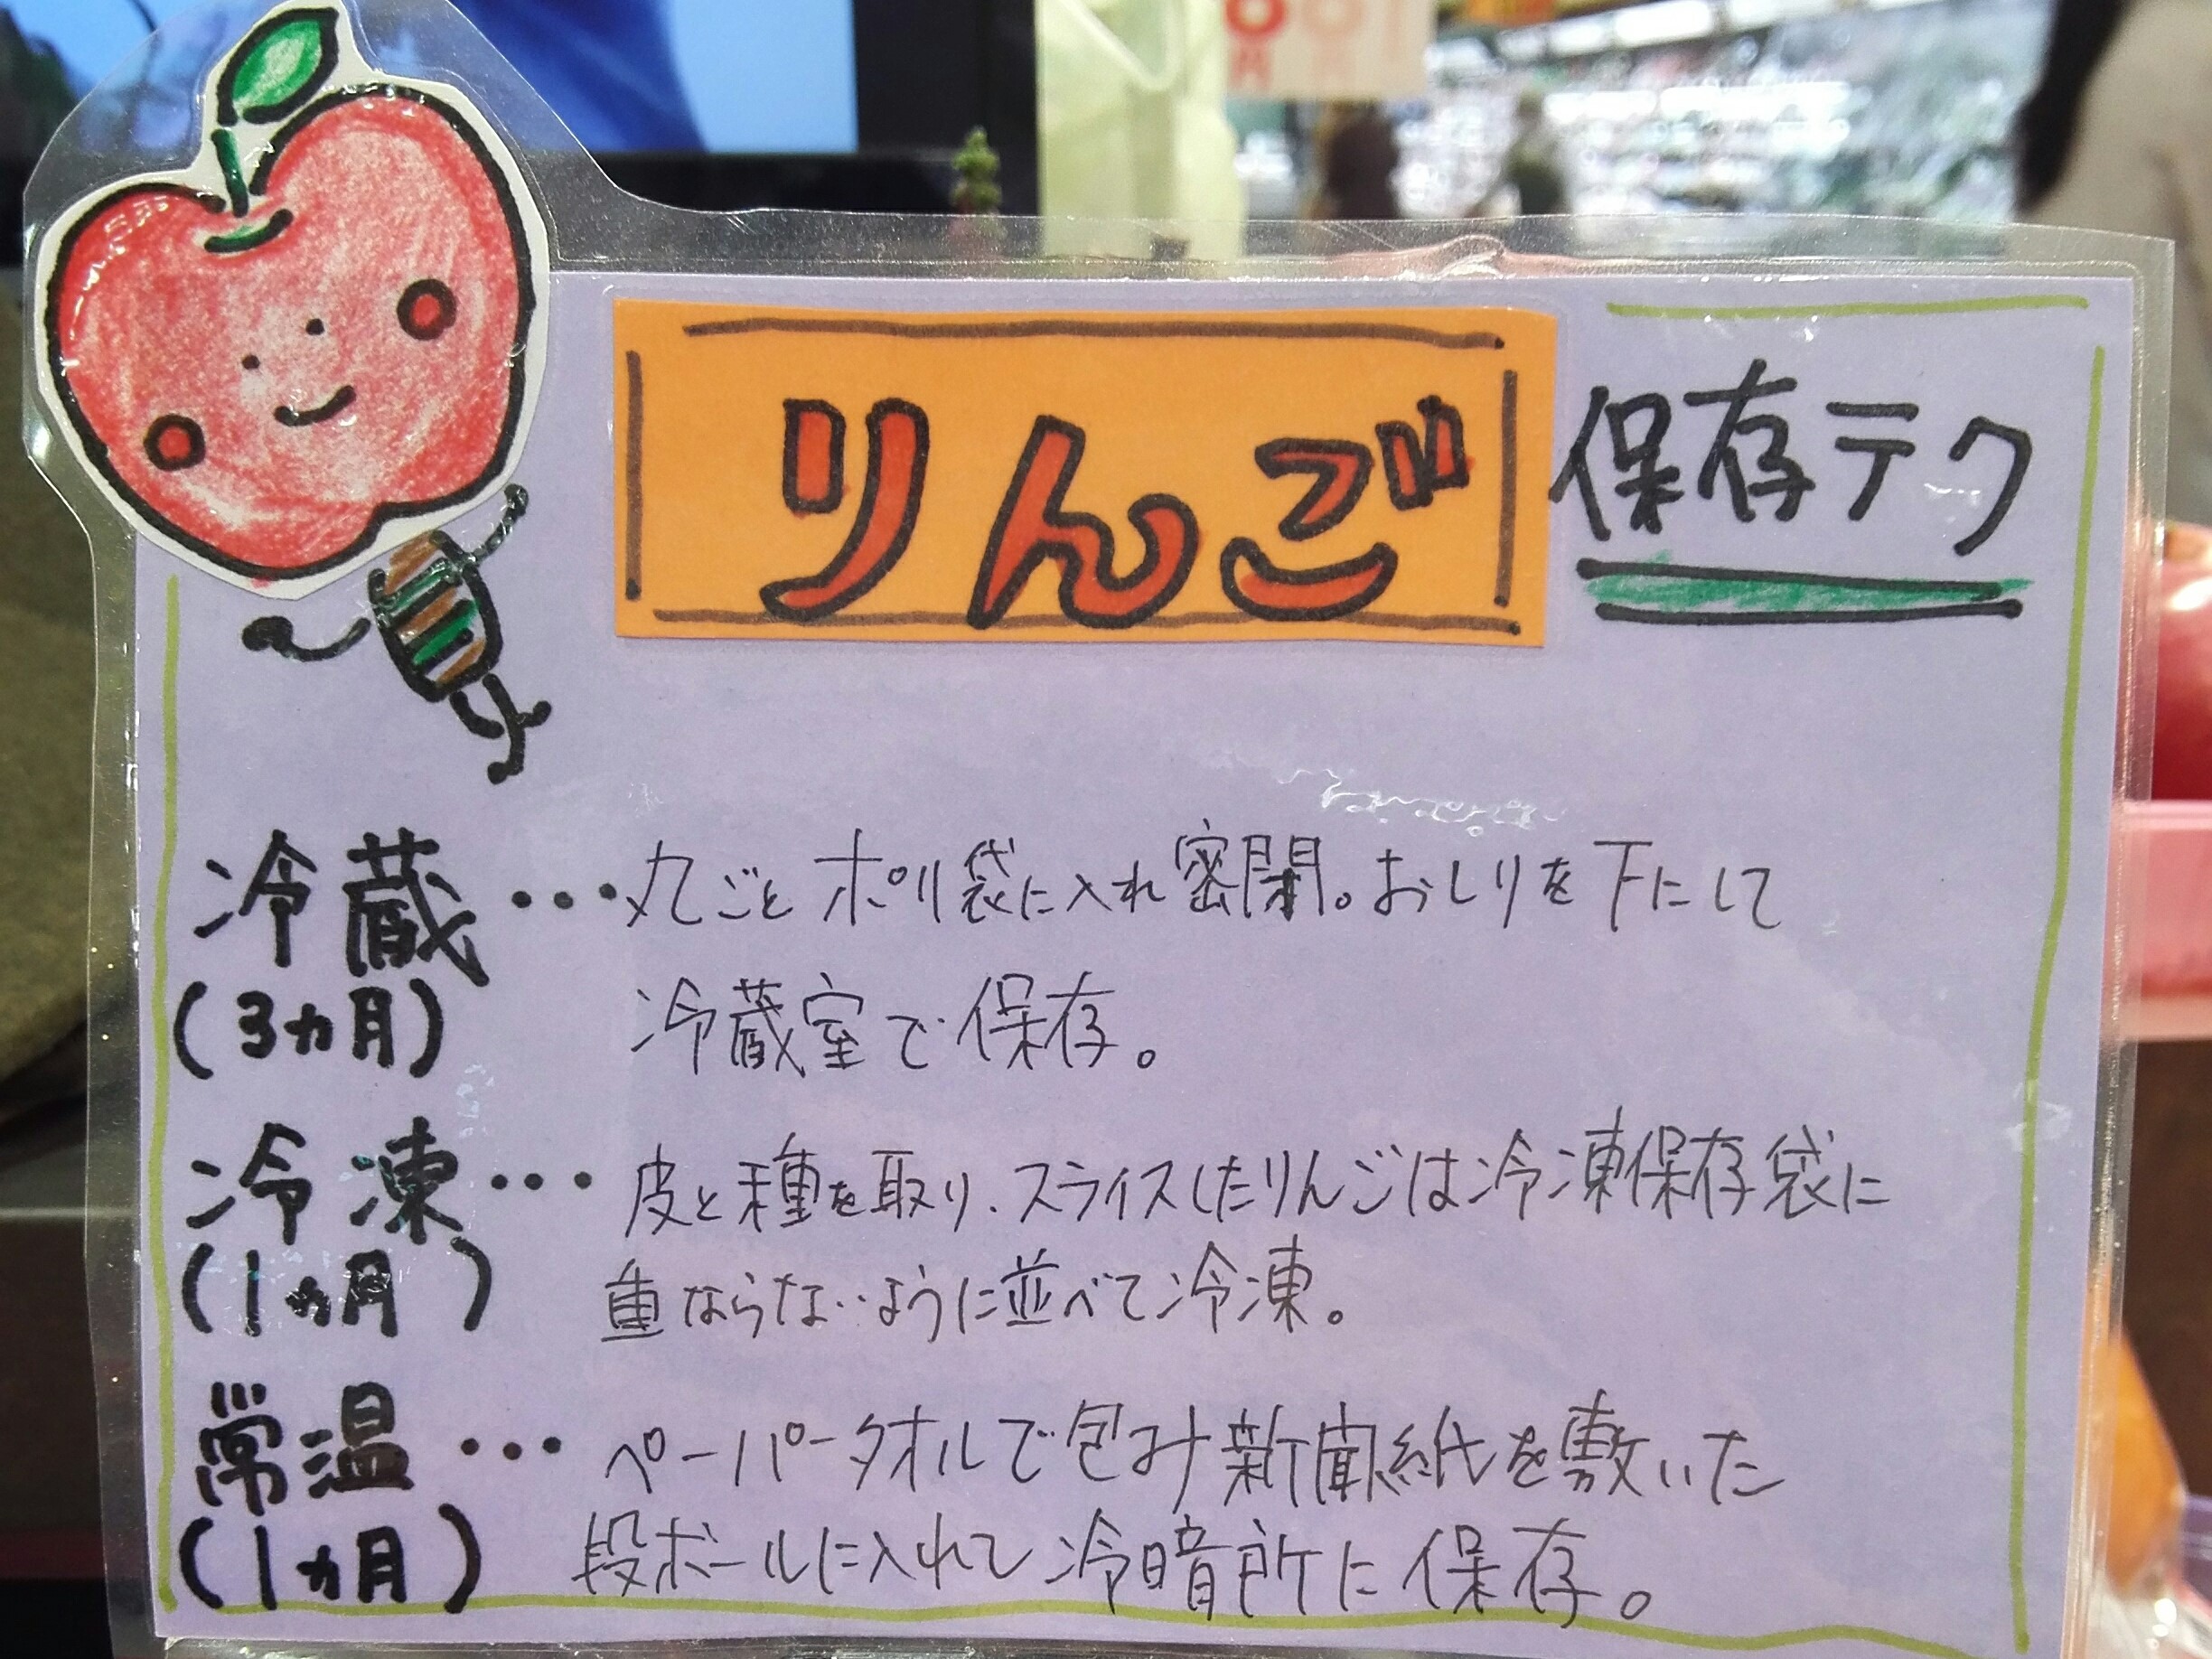 りんご 保存テク
冷蔵・・・丸ごとポリ袋に入れ密閉。おしりを下にして
(3ヵ月) 冷蔵室で保存。
冷凍・・・皮と種を取り、スライスしたりんごは冷凍保存袋に
(1ヵ月) 重ならないように並べて冷凍。
常温・・・ペーパータオルで包み新聞紙を敷いた
(1ヵ月) 段ボールに入れて冷暗所に保存。